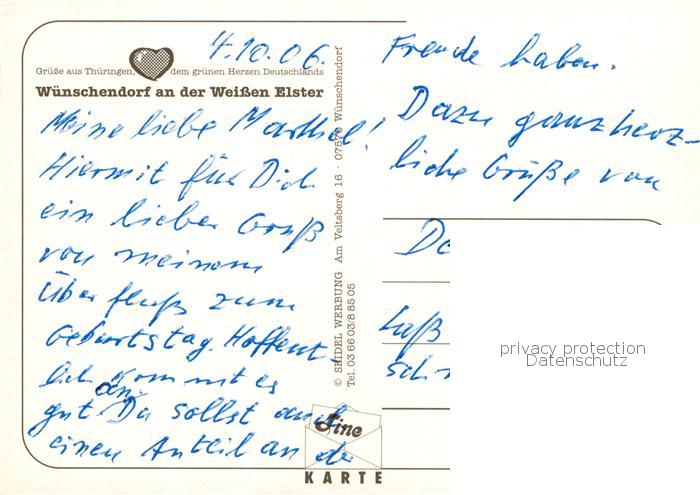 4.10.06.
Grüße aus Thüringen, dem grünen Herzen Deutschlands
Wünschendorf an der Weißen Elster
Meine liebe Marthel!
Hiermit für Dich
ein lieber Gruß
von meinem
Überfluß zum
Geburtstag. Hoffent-
lich kommt es
gut an Du sollst auch
einen Anteil an der
Freude haben.
Dazu ganz herz-
liche Grüße von
© SEIDEL WERBUNG Am Veitsberg 16 · 07570 Wünschendorf
Tel. 03 66 03/8 85 05
Eine
KARTE
privacy protection
Datenschutz